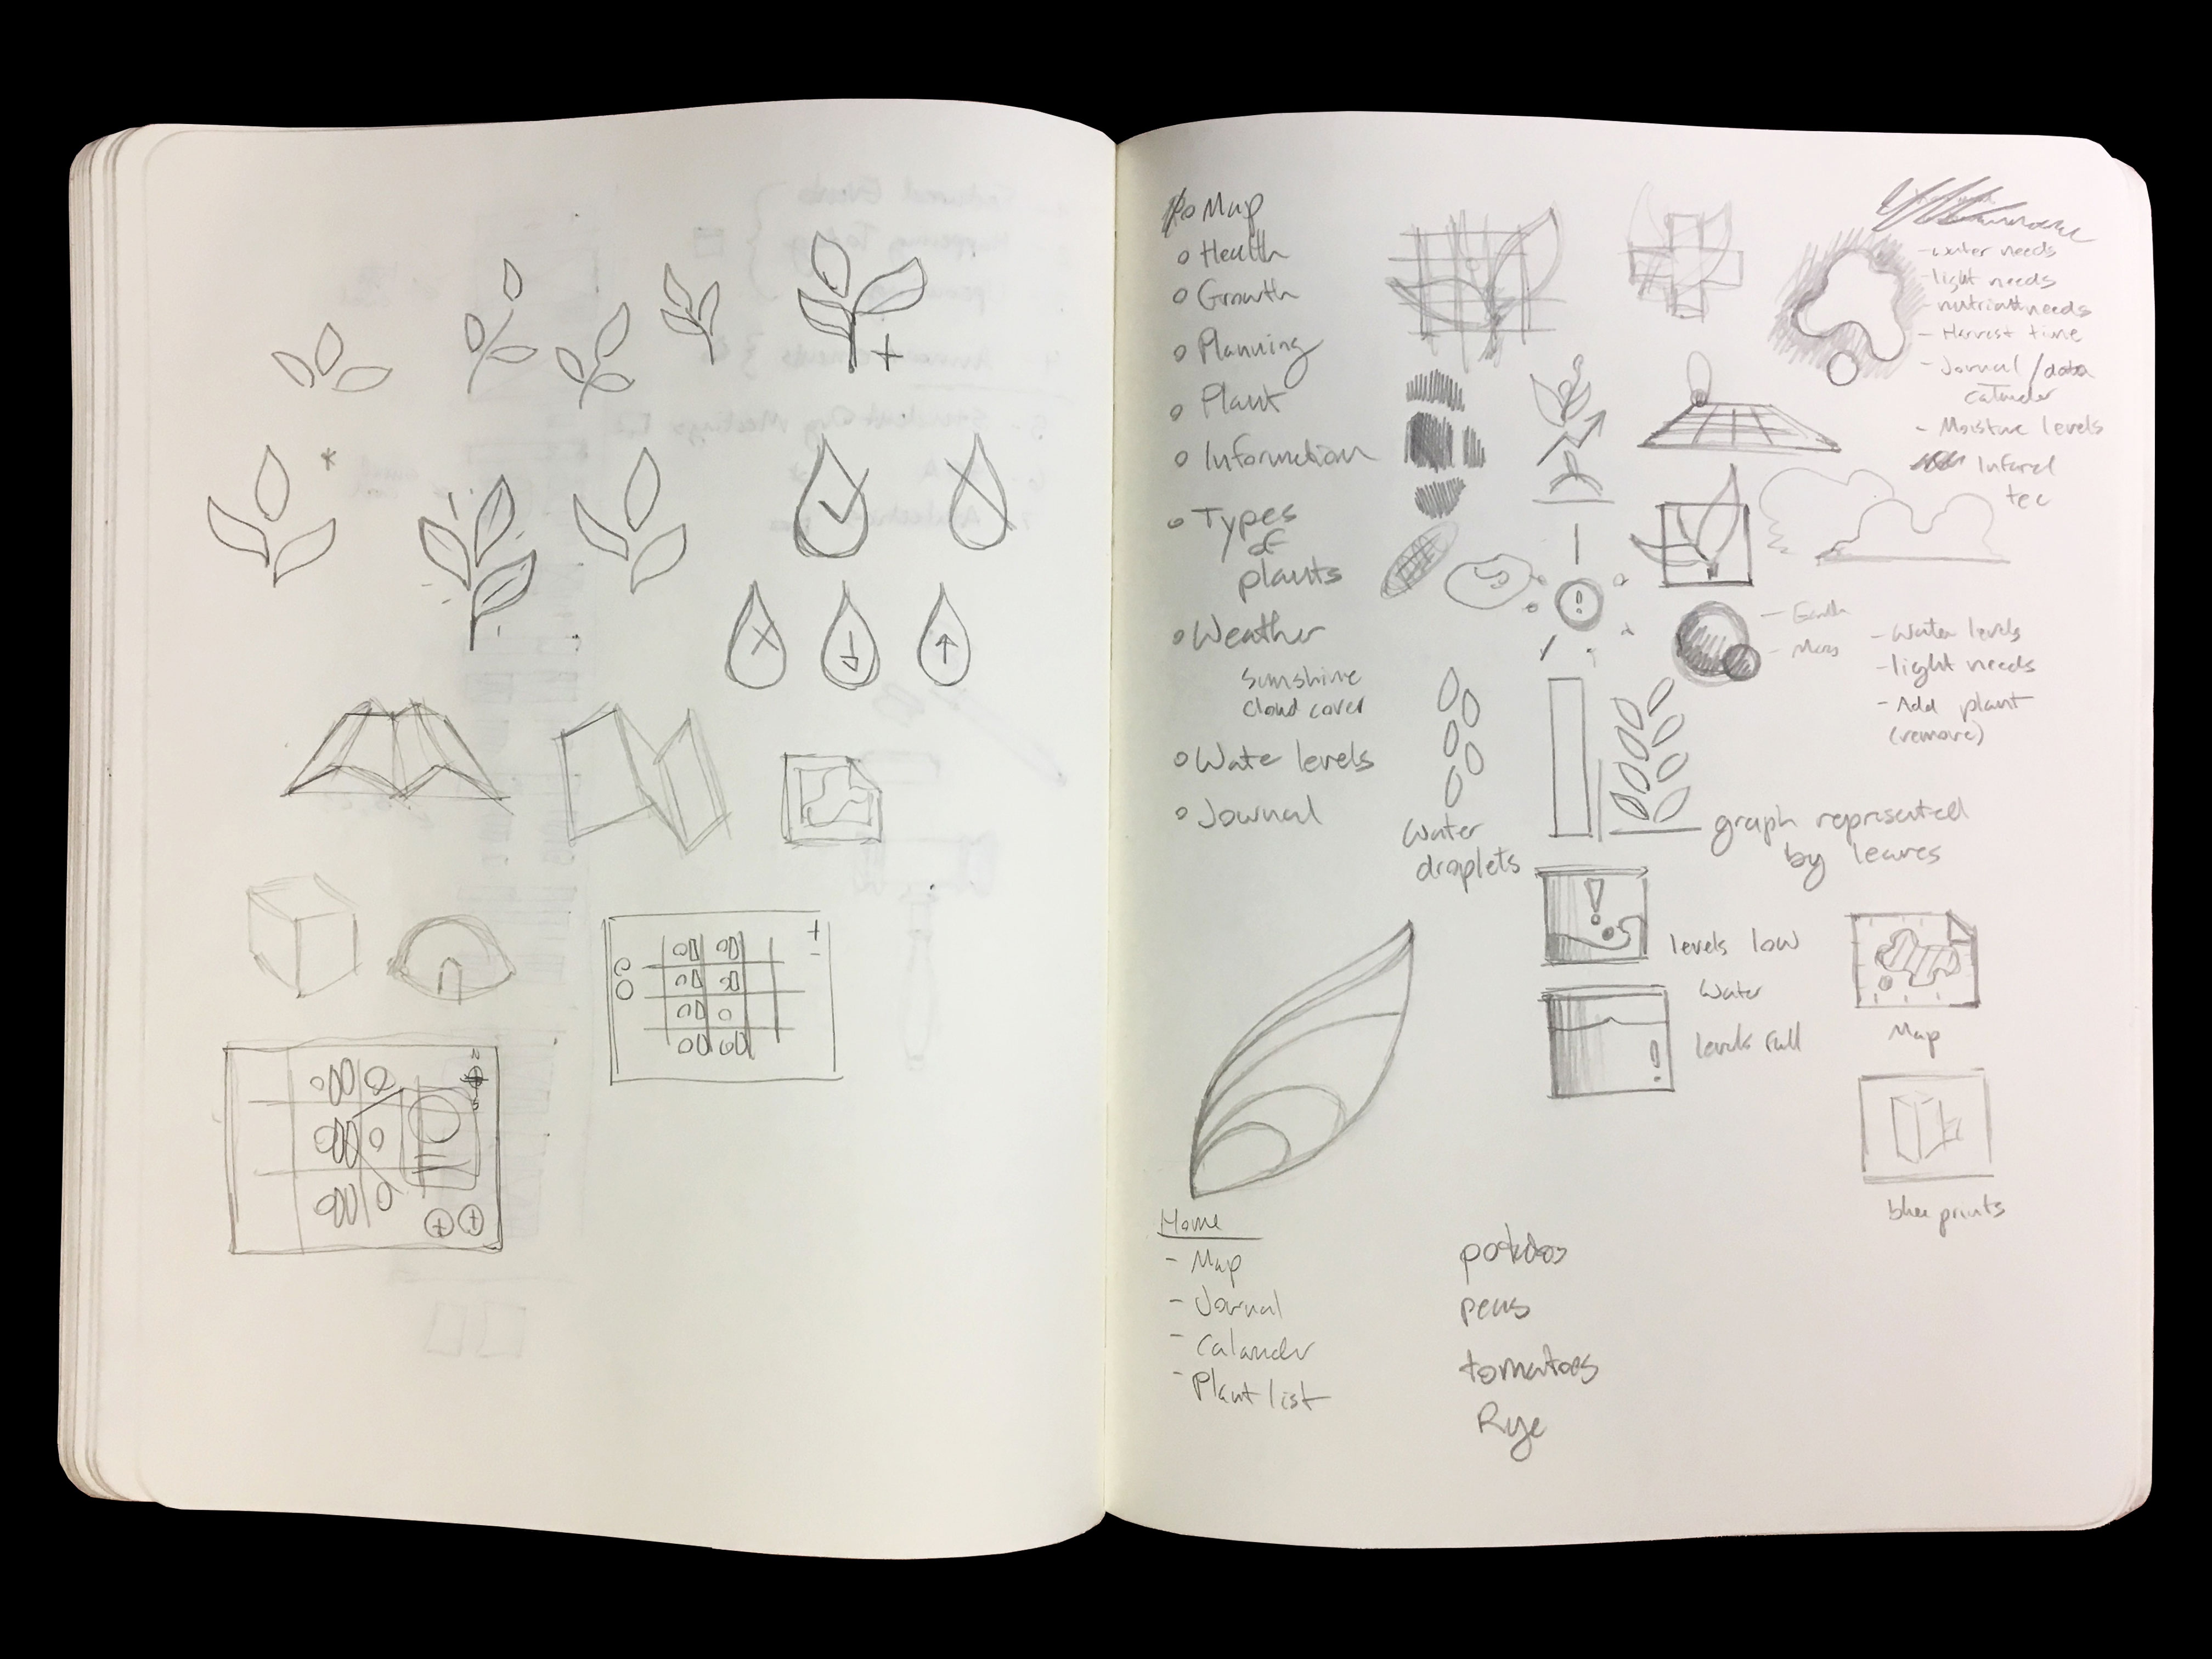 Map
Health
Growth
Planning
Plant
Information
Types
of
plants
Weather
Sunshine
cloud cover
Wate levels
Journal
- water needs
light needs
- nutriant needs
- Harvest time
- Jornal / data
- Moisture levels
Infared
tec
- Earth
- Mars
- Water levels
- light needs
- Add plant
(remove)
Water
droplets
graph represented
by leaves
levels low
Water
levels full
Map
blue prints
Home
- Map
- Journal
- Calander
- Plant list
peas
tomatoes
Rye